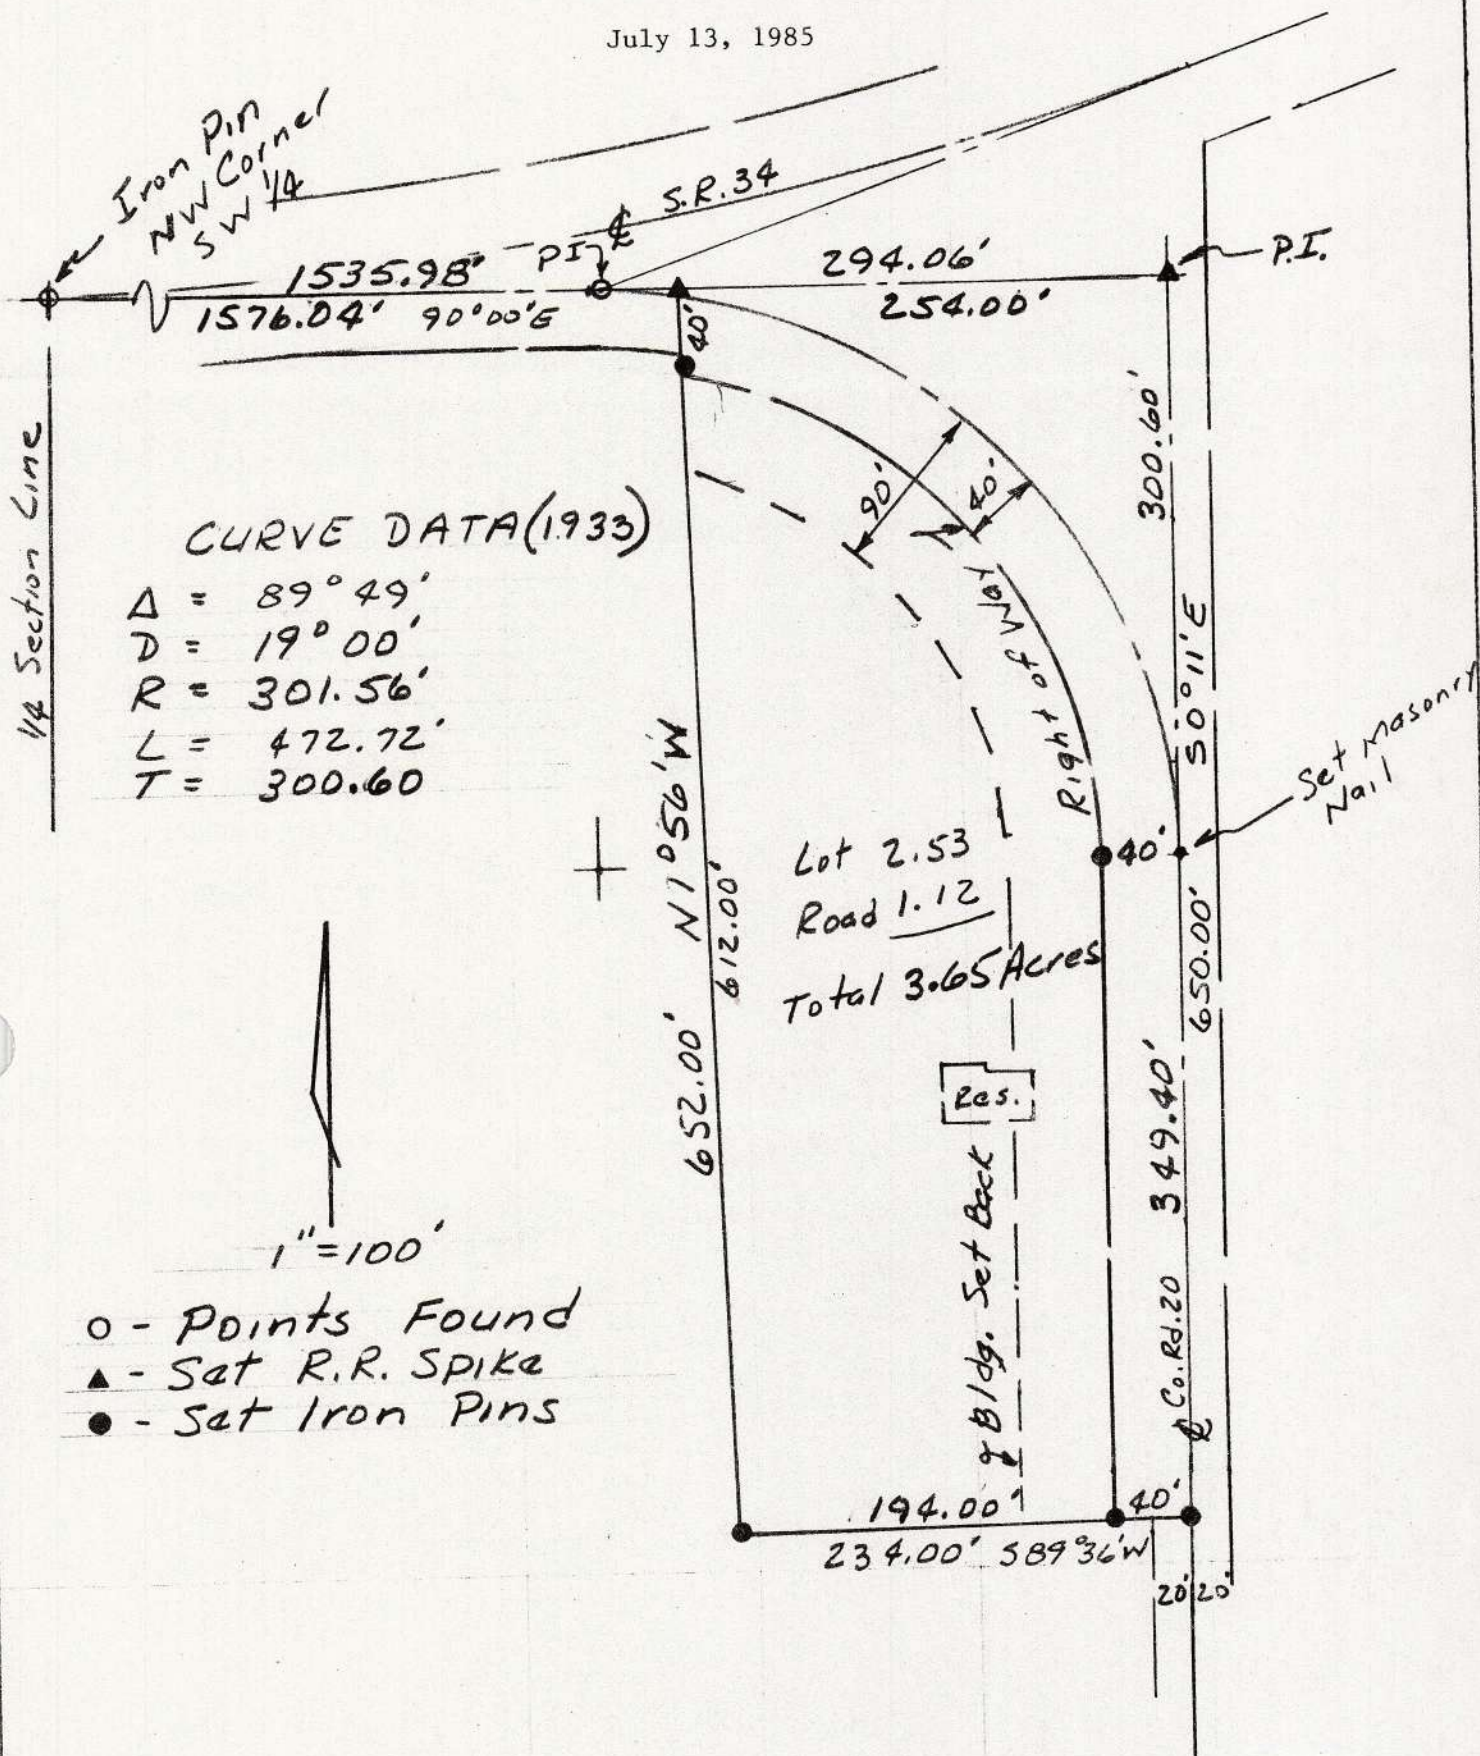 July 13, 1985
Iron Pin
NW Corner
SW 1/4
S.R. 34
P.I.
℄
1535.98'
1576.04' 90°00'E
294.06'
254.00'
P.I.
40'
300.60'
1/4 Section Line
90'
40'
CURVE DATA (1933)
Δ = 89°49'
D = 19°00'
R = 301.56'
L = 472.72'
T = 300.60
Right of Way
S0°11'E
Set Masonry
Nail
N1°56'W
612.00'
652.00'
Lot 2.53
Road 1.12
Total 3.65 Acres
40'
650.00'
349.40'
Res.
Bldg. Set Back
℄ Co. Rd. 20
1"=100'
o - Points Found
▲ - Set R.R. Spike
● - Set Iron Pins
194.00'
40'
234.00' S89°36'W
20' 20'